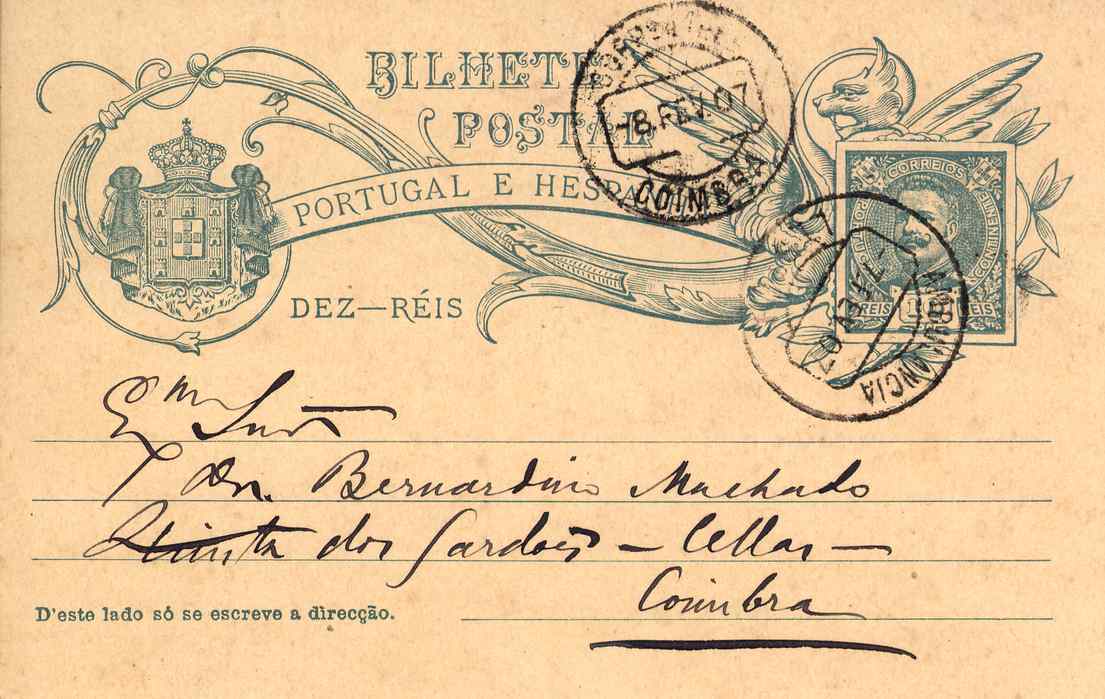 BILHETE
POSTAL
PORTUGAL E HESPA
DEZ—RÉIS
CORREIOS
REIS 10 REIS
8. FEV. 07
COIMBRA
AMBULANCIA
Exm Snr
Dr. Bernardino Machado
Quinta dos Sardões – Cellas –
Coimbra
D'este lado só se escreve a direcção.